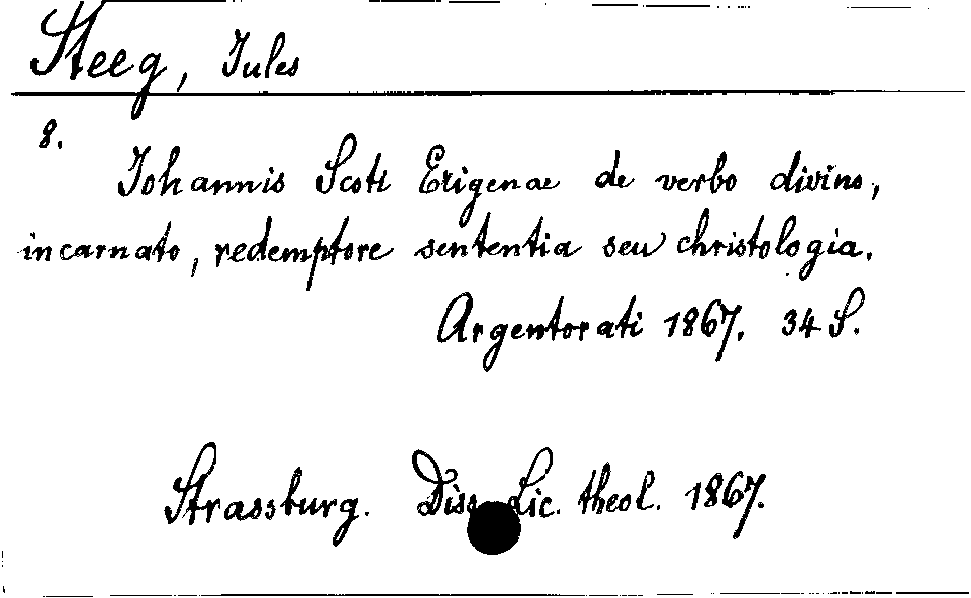 Steeg, Jules
8.
Johannis Scoti Erigenae de verbo divino,
incarnato, redemptore sententia seu christologia.
Argentorati 1867. 34 S.
Strassburg. Diss. Lic. theol. 1867.